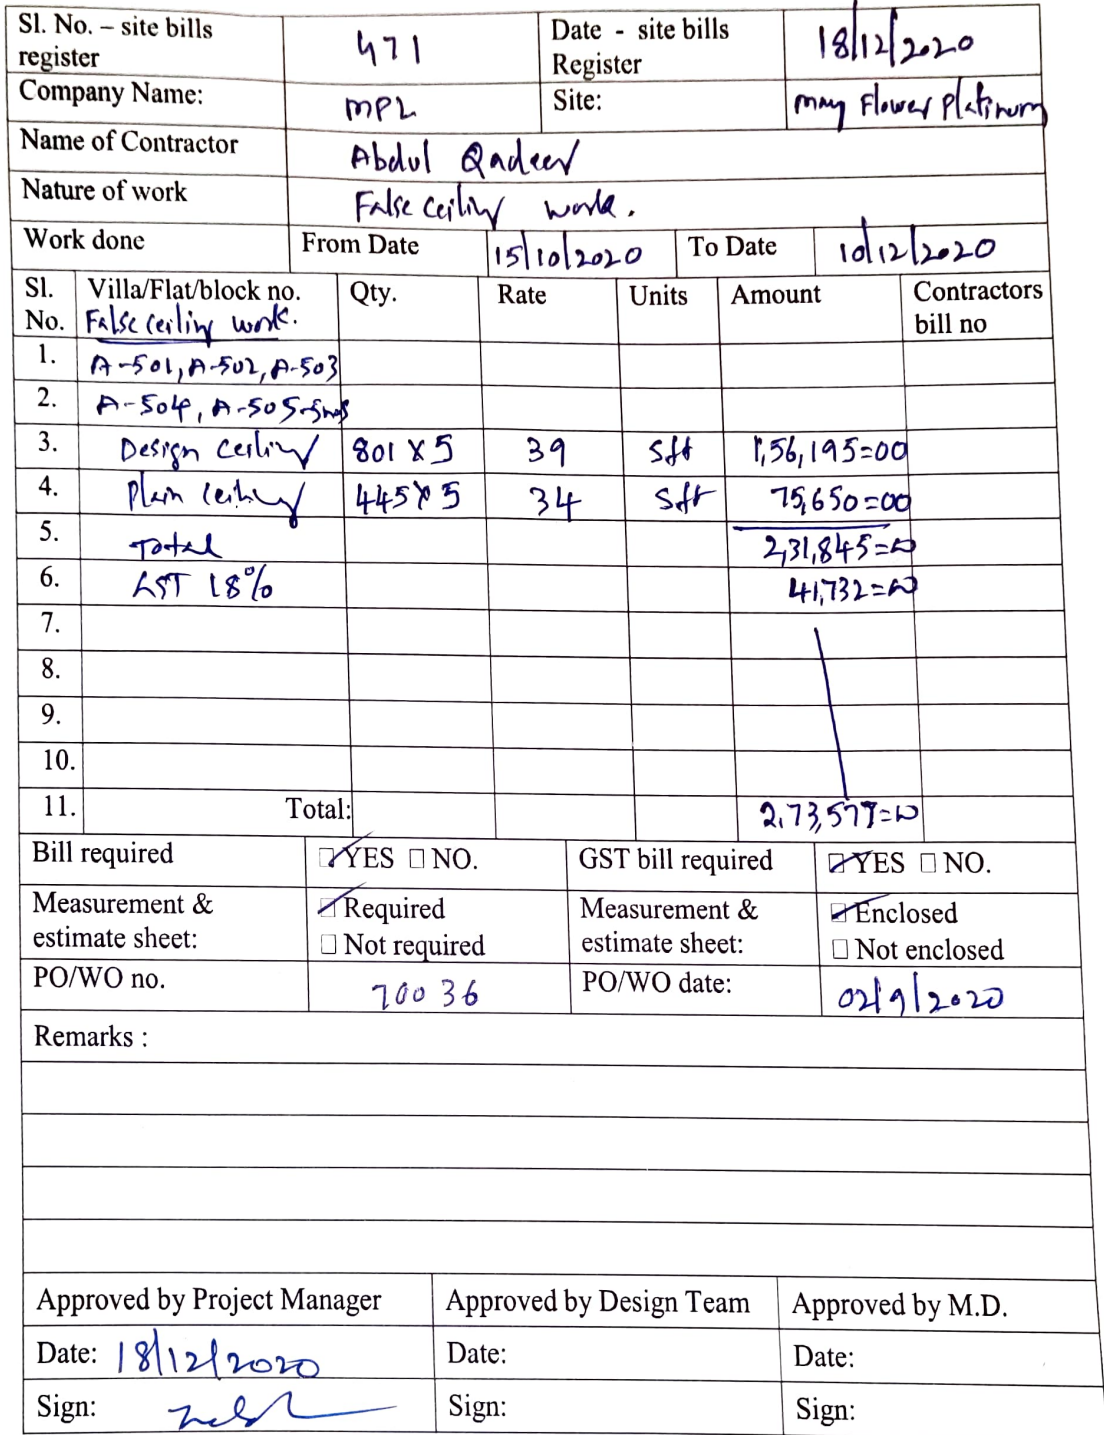 Sl. No. – site bills register 471 Date - site bills Register 18/12/2020
Company Name: MPL Site: May Flower Platinum
Name of Contractor Abdul Qadeer
Nature of work False ceiling work.
Work done From Date 15/10/2020 To Date 10/12/2020
Sl. No. Villa/Flat/block no. False ceiling work. Qty. Rate Units Amount Contractors bill no
1. A-501, A-502, A-503
2. A-504, A-505
3. Design ceiling 801 X 5 39 sft 1,56,195=00
4. Plain ceiling 445 X 5 34 sft 75,650=00
5. Total 2,31,845=00
6. GST 18% 41,732=00
7.
8.
9.
10.
11. Total: 2,73,577=00
Bill required ☑ YES ☐ NO. GST bill required ☑ YES ☐ NO.
Measurement & estimate sheet: ☑ Required ☐ Not required Measurement & estimate sheet: ☑ Enclosed ☐ Not enclosed
PO/WO no. 70036 PO/WO date: 02/9/2020
Remarks :
Approved by Project Manager Approved by Design Team Approved by M.D.
Date: 18/12/2020 Date: Date:
Sign: Sign: Sign: